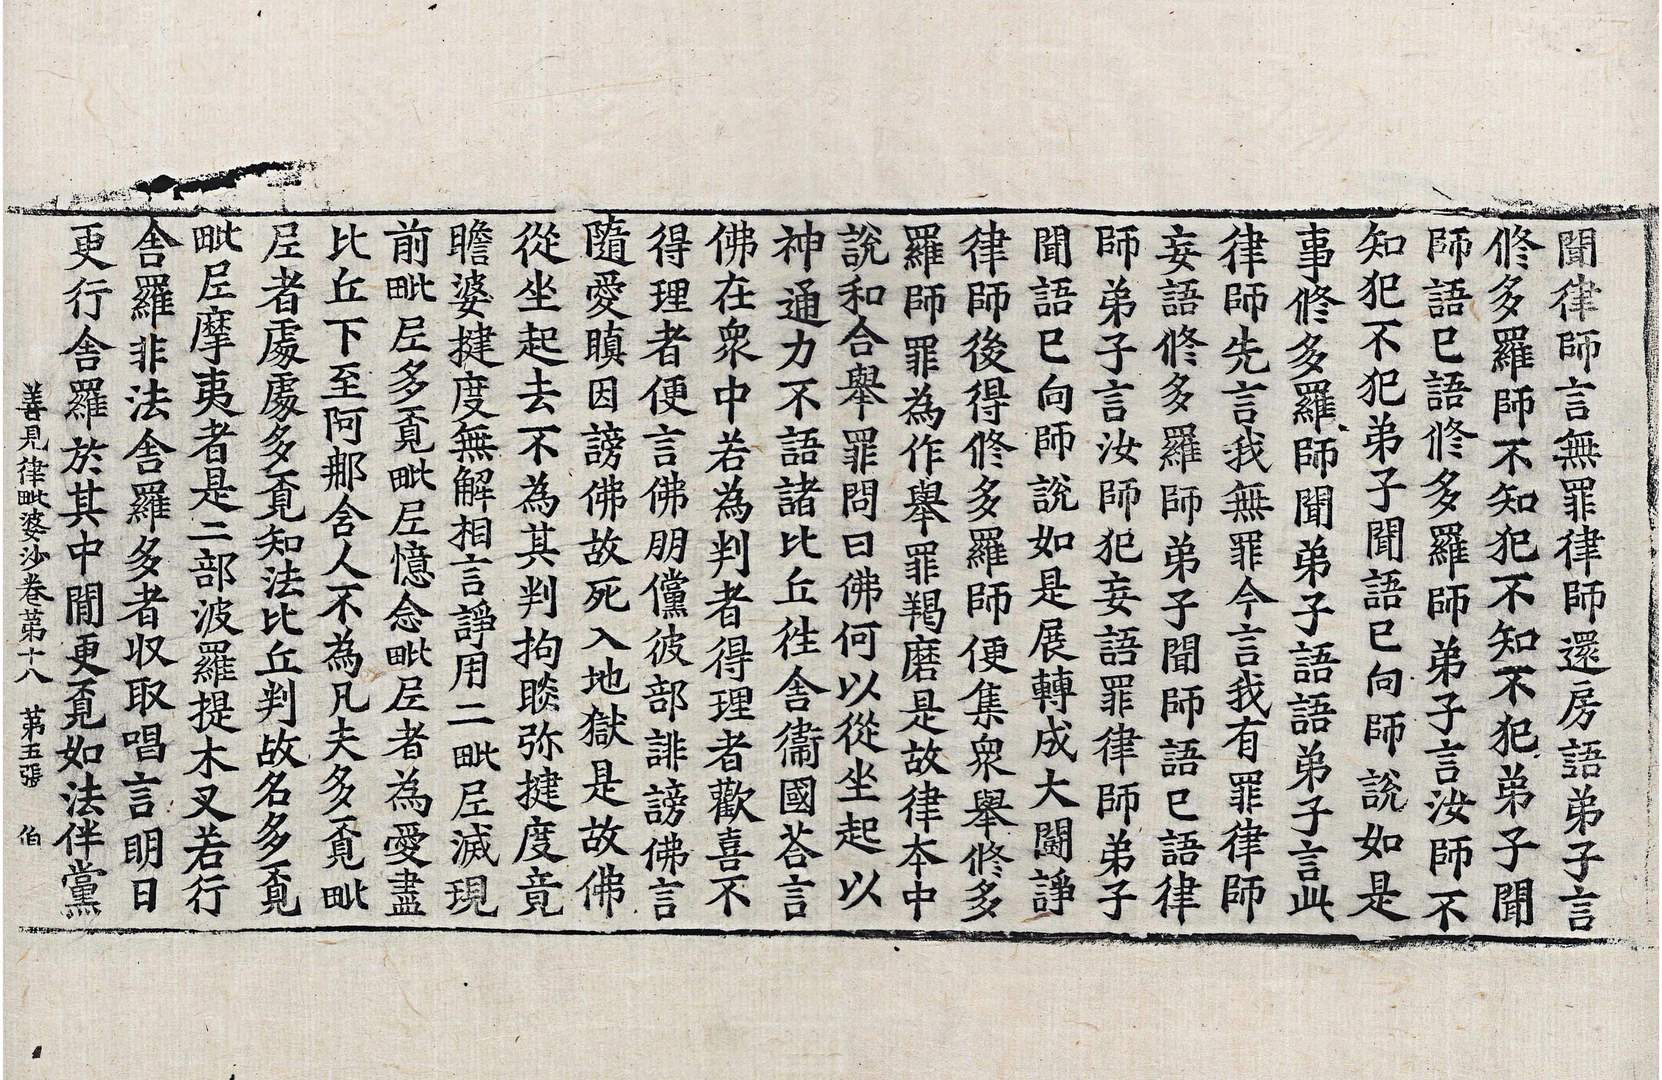 聞律師言無罪律師還房語弟子言
修多羅師不知犯不知不犯弟子聞
師語已語修多羅師弟子言汝師不
知犯不犯弟子聞語已向師說如是
事修多羅師聞弟子語語弟子言此
律師先言我無罪今言我有罪律師
妄語修多羅師弟子聞師語已語律
師弟子言汝師犯妄語罪律師弟子
聞語已向師說如是展轉成大鬪諍
律師後得修多羅師便集衆舉修多
羅師罪為作舉罪羯磨是故律本中
說和合舉罪問曰佛何以從坐起以
神通力不語諸比丘徃舍衞國荅言
佛在衆中若為判者得理者歡喜不
得理者便言佛朋儻彼部誹謗佛言
隨愛瞋因謗佛故死入地獄是故佛
從坐起去不為其判拘睒弥揵度竟
瞻婆揵度無解相言諍用二毗尼滅現
前毗尼多覓毗尼憶念毗尼者為愛盡
比丘下至阿那含人不為凡夫多覓毗
尼者處處多覓知法比丘判故名多覓
毗尼摩夷者是二部波羅提木叉若行
舍羅非法舍羅多者収取唱言明日
更行舍羅於其中閒更覓如法伴黨
善見律毗婆沙卷第十八 第五張 伯